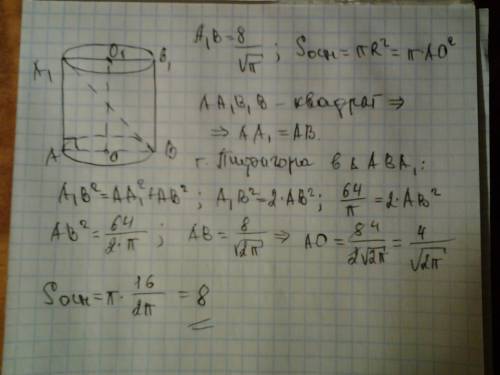 O₁
A₁ B₁
A O B
A₁B = 8/√π ; Sосн = πR² = π·AO²
AA₁B₁B – квадрат ⇒
⇒ AA₁ = AB.
т. Пифагора в Δ ABA₁:
A₁B² = AA₁² + AB² ; A₁B² = 2·AB² ; 64/π = 2·AB²
AB² = 64/2·π ; AB = 8/√2π ⇒ AO = 8/2√2π = 4/√2π
Sосн = π · 16/2π = 8